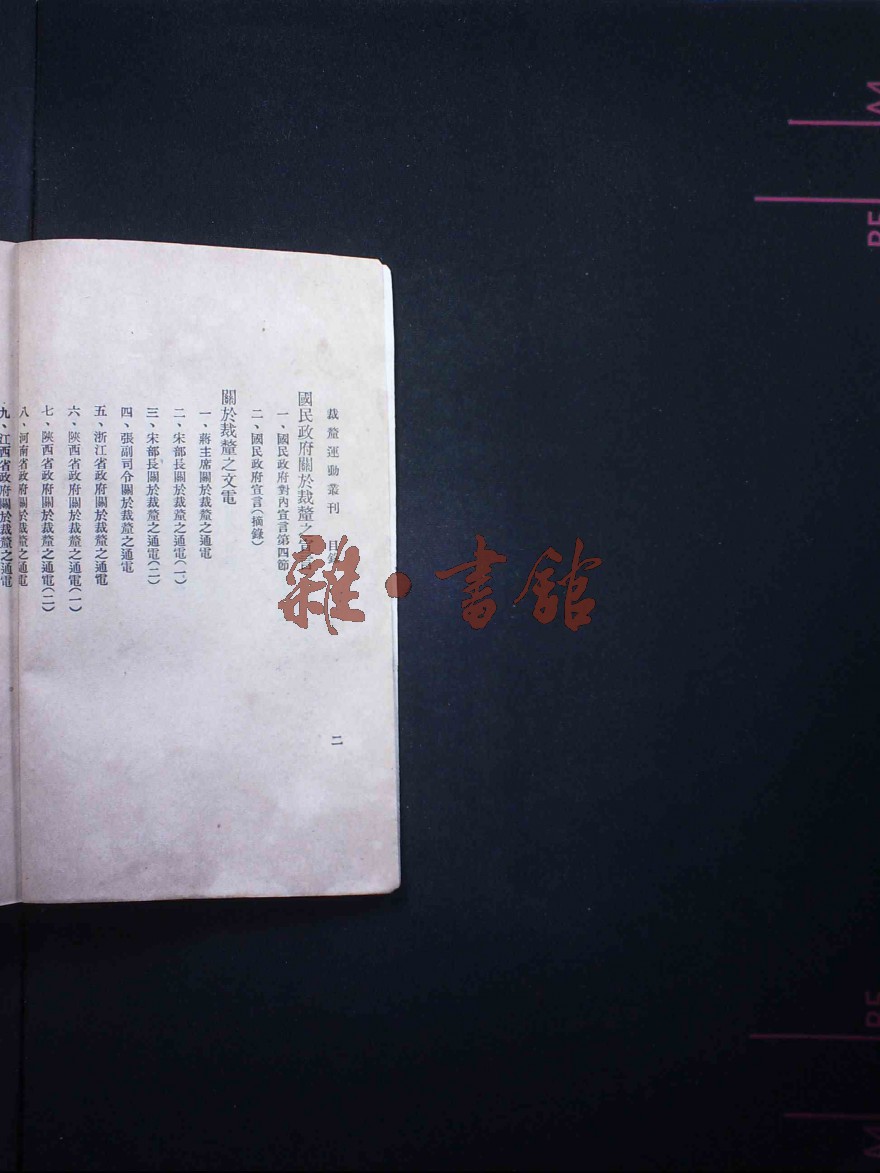 裁釐運動叢刊 目錄 二
國民政府關於裁釐之宣言
一、國民政府對內宣言第四節
二、國民政府宣言（摘錄）
關於裁釐之文電
一、蔣主席關於裁釐之通電
二、宋部長關於裁釐之通電（一）
三、宋部長關於裁釐之通電（二）
四、張副司令關於裁釐之通電
五、浙江省政府關於裁釐之通電
六、陝西省政府關於裁釐之通電（一）
七、陝西省政府關於裁釐之通電（二）
八、河南省政府關於裁釐之通電
九、江西省政府關於裁釐之通電
雜·書館
A4
B5
B5
A4